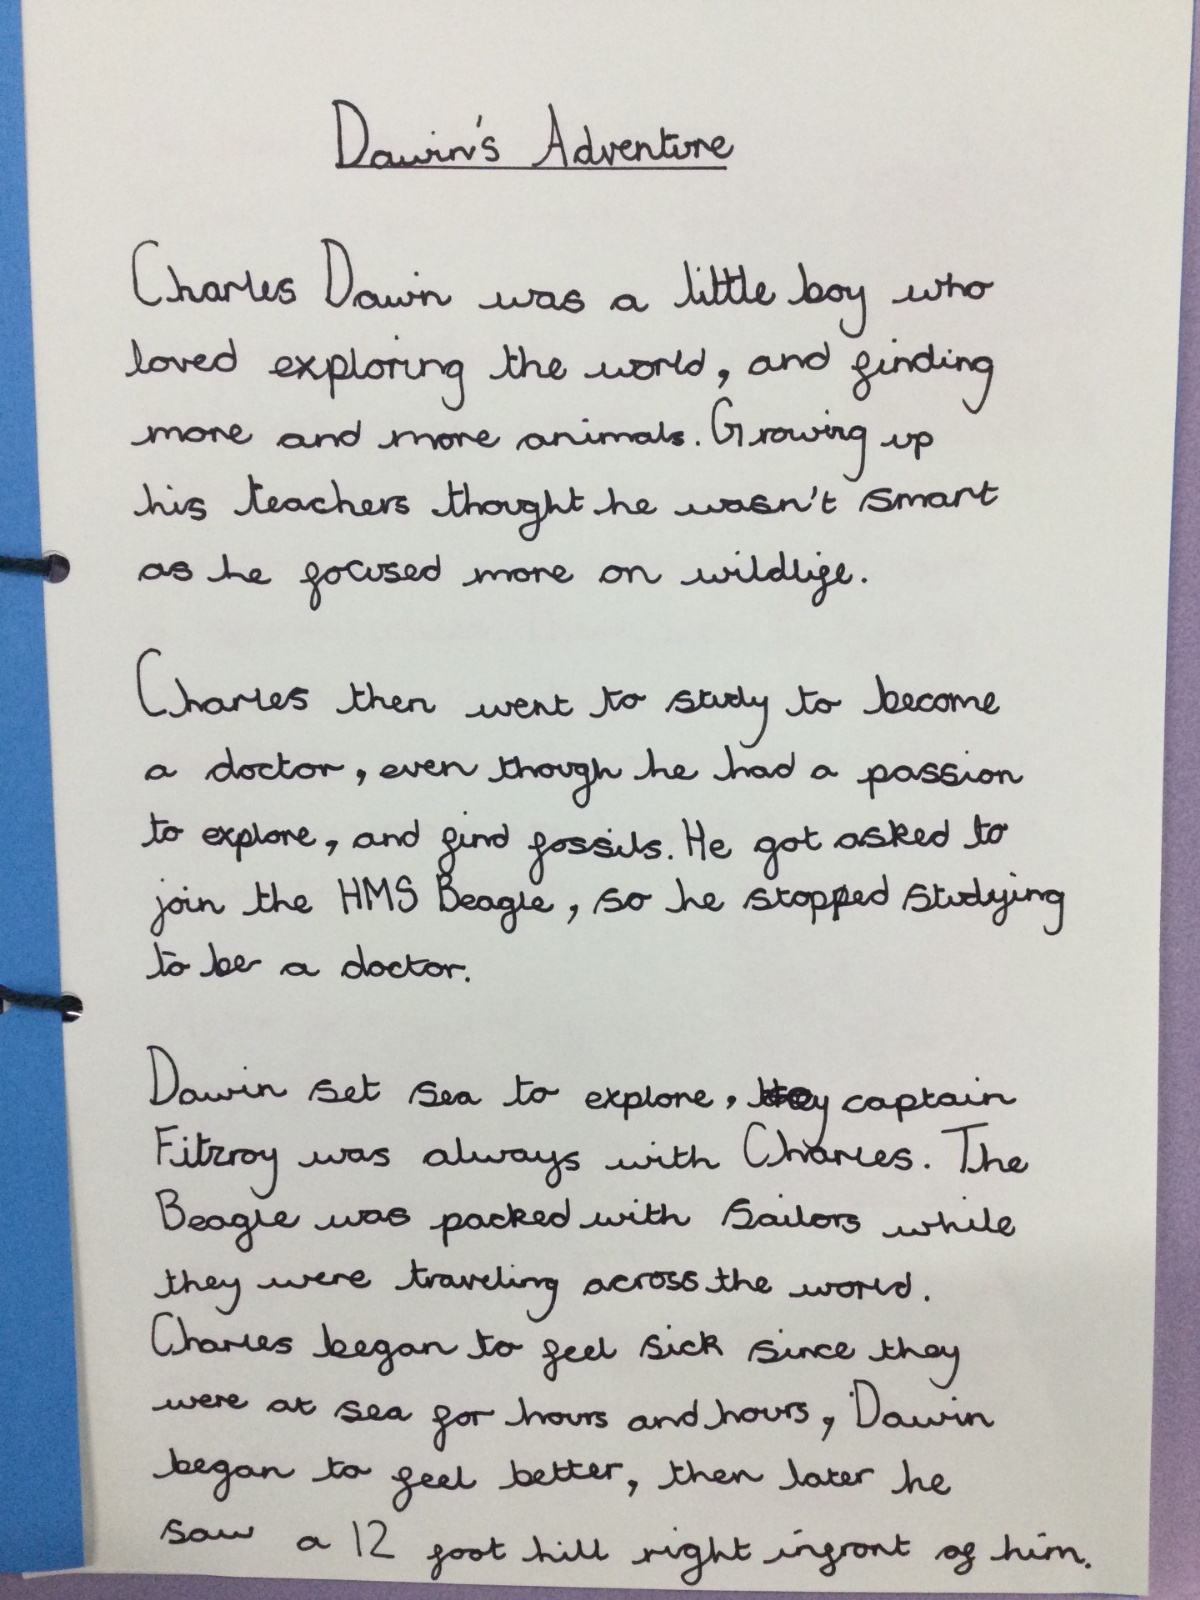 Dawin's Adventure
Charles Dawin was a little boy who
loved exploring the world, and finding
more and more animals. Growing up
his teachers thought he wasn't smart
as he focused more on wildlife.
Charles then went to study to become
a doctor, even though he had a passion
to explore, and find fossils. He got asked to
join the HMS Beagle, so he stopped studying
to be a doctor.
Dawin set sea to explore, captain
Fitzroy was always with Charles. The
Beagle was packed with sailors while
they were traveling across the world.
Charles began to feel sick since they
were at sea for hours and hours, Dawin
began to feel better, then later he
saw a 12 foot hill right infront of him.